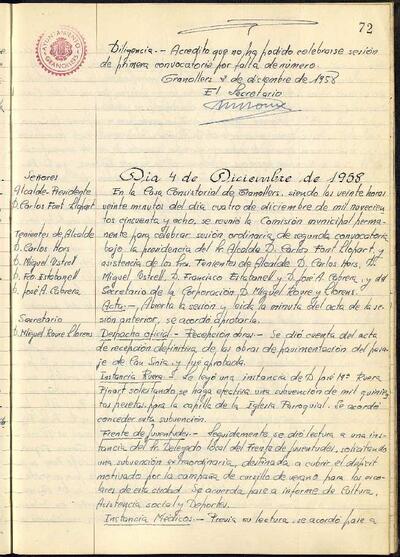 72
AYUNTAMIENTO
GRANOLLERS
Diligencia.- Acredito que no ha podido celebrarse sesión
de primera convocatoria por falta de número.
Granollers 2 de diciembre de 1958
El Secretario
Dia 4 de Diciembre de 1958
Señores
Alcalde-Presidente
D. Carlos Font Llopart
Tenientes de Alcalde
D. Carlos Hors
D. Miguel Ustrell
D. Fco. Estabanell
D. José A. Cabrera
Secretario
D. Miguel Roure Llorens
En la Casa Consistorial de Granollers, siendo las veinte horas
veinte minutos del día cuatro de diciembre de mil novecien
tos cincuenta y ocho, se reunió la Comisión municipal perma-
nente para celebrar sesión ordinaria, de segunda convocatoria
bajo la presidencia del Sr. Alcalde D. Carlos Font Llopart, y
asistencia de los Sres. Tenientes de Alcalde D. Carlos Hors, D.
Miguel Ustrell, D. Francisco Estabanell y D. José A. Cabrera y del
Secretario de la Corporación D. Miguel Roure y Llorens.
Acta.- Abierta la sesión y leida la minuta del acta de la se-
sión anterior, se acordó aprobarla.
Despacho oficial.- Recepción obras.- Se dió cuenta del acta
de recepción definitiva de las obras de pavimentación del pasa-
je de Can Sinia, y fue aprobada.
Instancia Ruera.- Se leyó una instancia de D. José Mª Ruera
Pinart solicitando se haga efectiva una subvención de mil quinien
tas pesetas para la capilla de la Iglesia Parroquial. Se acordó
conceder esta subvención.
Frente de Juventudes.- Seguidamente se dió lectura a una ins-
tancia del Sr. Delegado local del Frente de Juventudes, solicitando
una subvención extraordinaria, destinada a cubrir el déficit
motivado por la campaña de cursillo de verano para los esco-
lares de esta ciudad. Se acuerda pase a informe de Cultura,
Asistencia social y Deportes.
Instancia Médicos.- Previa su lectura, se acordó pase a